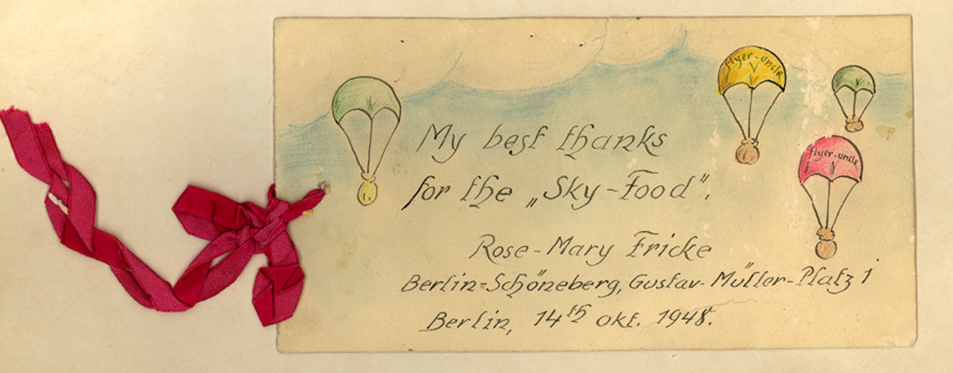 flyer-uncle
flyer-uncle
My best thanks
for the „Sky-Food".
Rose-Mary Fricke
Berlin=Schöneberg, Gustav-Müller-Platz 1
Berlin, 14th Okt. 1948.